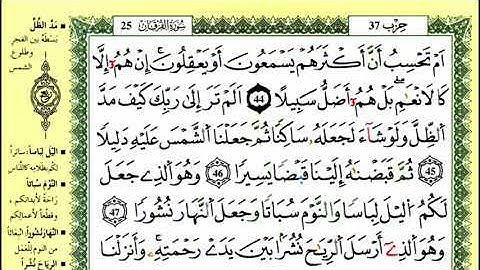 حِزْب 37
سُورَةُ الْفُرْقَانِ
25
اَمْ تَحْسِبُ أَنَّ أَكْثَرَهُمْ يَسْمَعُونَ أَوْ يَعْقِلُونَ إِنْ هُمُ إِلَّا
كَالَانْعَٰمِ بَلْ هُمُ أَضَلُّ سَبِيلًا 44 اَلَمْ تَرَ إِلَىٰ رَبِّكَ كَيْفَ مَدَّ
اَلظِّلَّ وَلَوْ شَآءَ لَجَعَلَهُ سَاكِنًا ثُمَّ جَعَلْنَا اَلشَّمْسَ عَلَيْهِ دَلِيلًا
45 ثُمَّ قَبَضْنَٰهُ إِلَيْنَا قَبْضًا يَسِيرًا 46 وَهُوَ اَلذِے جَعَلَ
لَكُمُ اُليْلَ لِبَاسًا وَالنَّوْمَ سُبَاتًا وَجَعَلَ اَلنَّهَارَ نُشُورًا 47
وَهُوَ اَلذِےٓ أَرْسَلَ اَلرِّيَٰحَ نُشُرًا بَيْنَ يَدَےْ رَحْمَتِهِۦ وَأَنزَلْنَا
مَدَّ الظِّلَّ
بَسَطَهُ بين الفجر
وطلوع
الشمس
ربع
اليْلَ لِبَاسًا: ساترًا
لكم بظلامه كاللباس
النَّوْمَ سُبَاتًا
راحة لأبدانكم
وقطعًا لأعمالكم
النَّهَارَ نُشُورًا: انبعاثا
من النوم للعمل
الرِّيَاحَ نُشُرًا